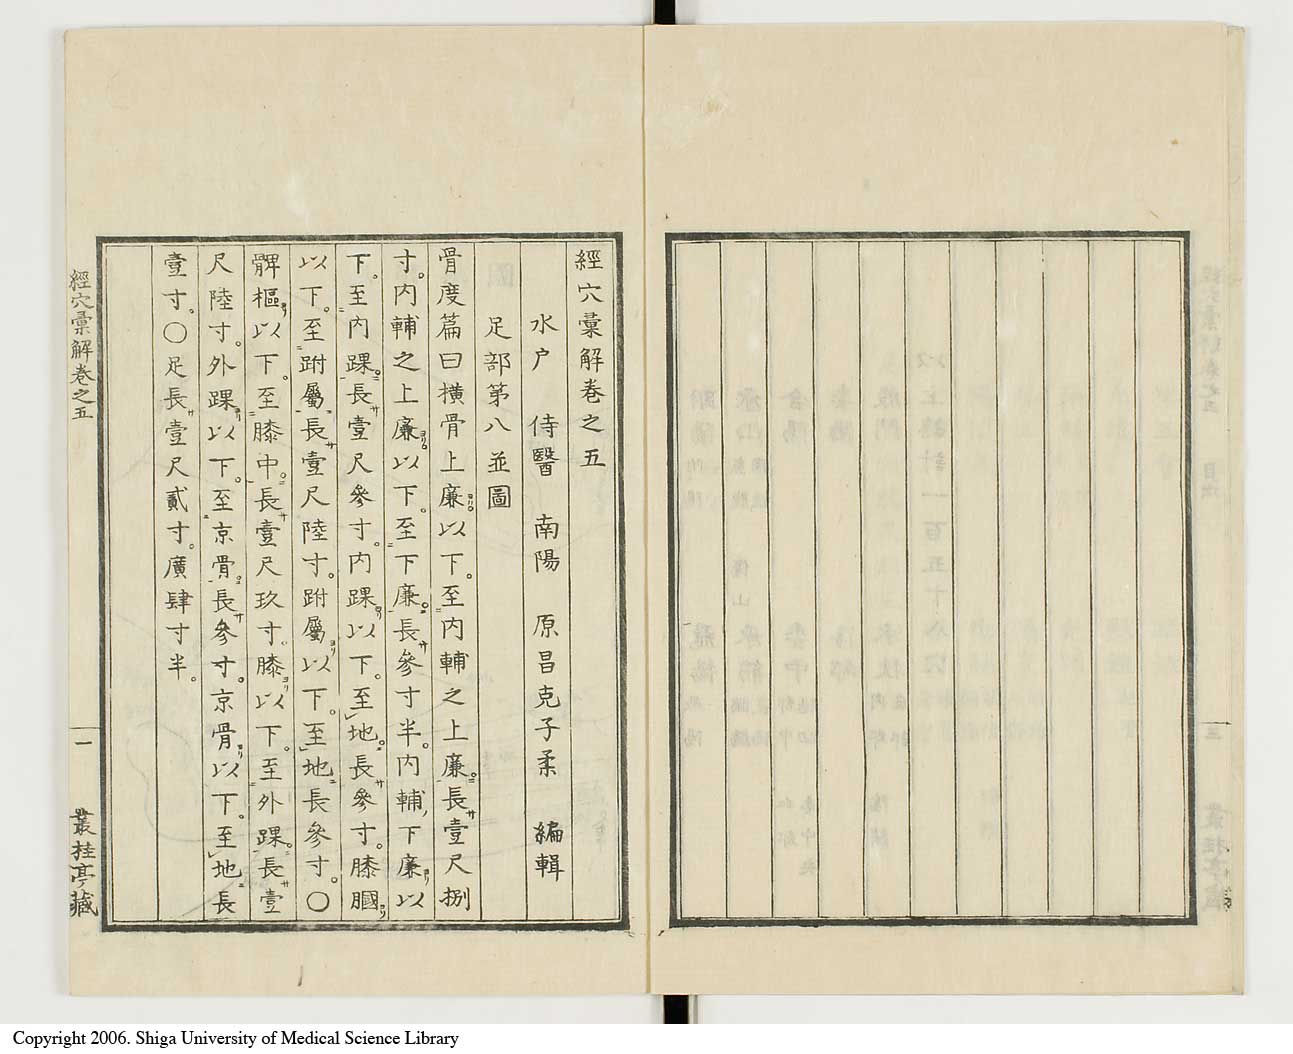 經穴彙解卷之五
水戶 侍醫 南陽 原昌克子柔 編輯
足部第八並圖
骨度篇曰橫骨上廉以下。至內輔之上廉。長壹尺捌
寸。內輔之上廉以下。至下廉。長參寸半。內輔下廉以
下。至內踝。長壹尺參寸。內踝以下。至地。長參寸。膝膕
以下。至跗屬。長壹尺陸寸。跗屬以下。至地長參寸。〇
髀樞以下。至膝中。長壹尺玖寸。膝以下。至外踝。長壹
尺陸寸。外踝以下。至京骨。長參寸。京骨以下。至地長
壹寸。〇足長壹尺貳寸。廣肆寸半。
經穴彙解卷之五
一
叢桂亭藏
Copyright 2006. Shiga University of Medical Science Library